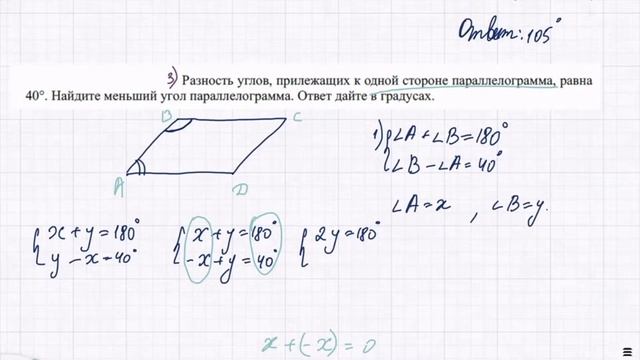 Ответ: 105°
3) Разность углов, прилежащих к одной стороне параллелограмма, равна
40°. Найдите меньший угол параллелограмма. Ответ дайте в градусах.
B
C
A
D
1) { ∠A + ∠B = 180°
∠B − ∠A = 40°
∠A = x , ∠B = y.
{ x + y = 180°
y − x = 40°
{ x + y = 180°
−x + y = 40°
{ 2y = 180°
x + (−x) = 0